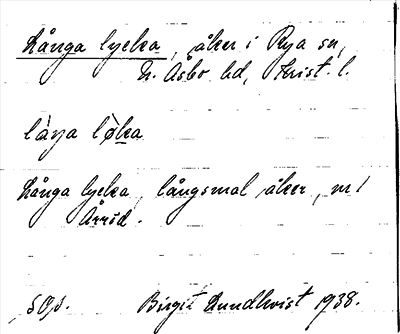 Långa lycka, åker i Rya sn,
N. Åsbo hd, Krist. l.
låŋa løka
Långa lycka, långsmal åker, nr 1
Årröd.
Sop. Birgit Lundkvist 1938.